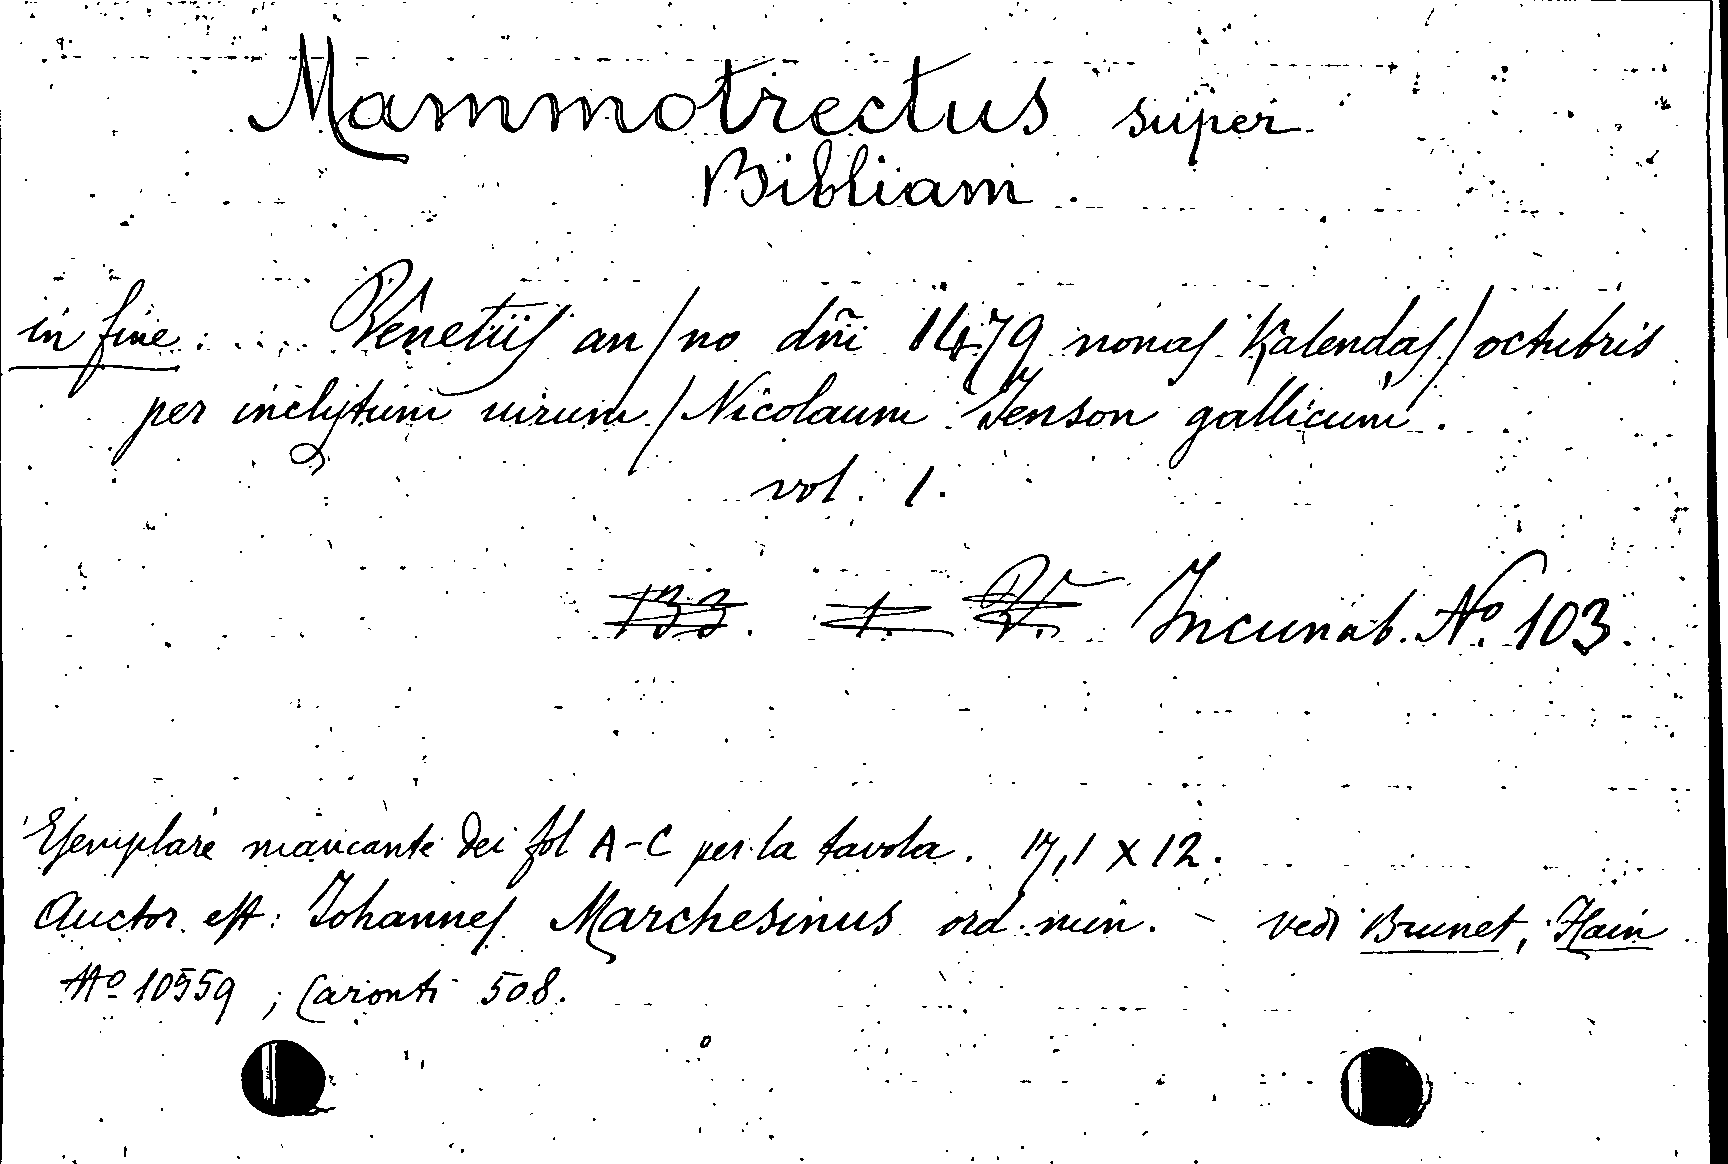 Mammotrectus super
Bibliam.
in fine: .... Venetiis an/no dñi 1479 nonas Kalendas/octubris
per inclytum uirum/Nicolaum Jenson gallicum.
vol. 1.
133. 1. V. Incunab. No. 103.
Esemplare mancante dei fol A-C per la tavola. 17,1 x 12.
Auctor est: Johannes Marchesinus ord. min. - vedi Brunet, Hain
No 10559; Caronti 508.